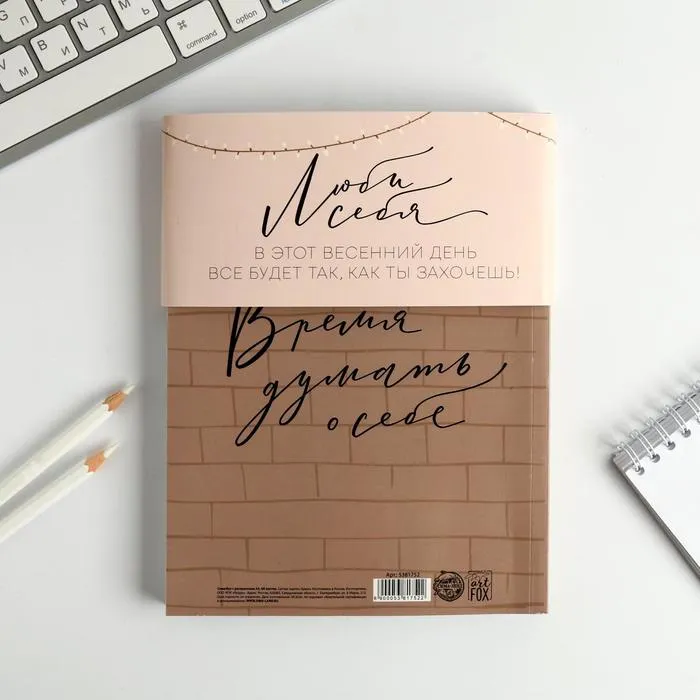 command
option
Люби
себя
В ЭТОТ ВЕСЕННИЙ ДЕНЬ
ВСЕ БУДЕТ ТАК, КАК ТЫ ЗАХОЧЕШЬ!
Время
думать
о себе
Арт: 5381752
art
FOX